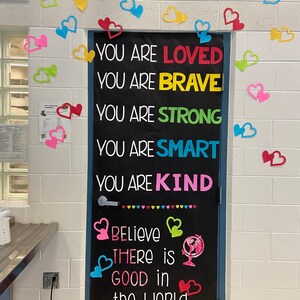 YOU ARE LOVED
YOU ARE BRAVE
YOU ARE STRONG
YOU ARE SMART
YOU ARE KIND
BELieve
THEre is
GOOD in
the World